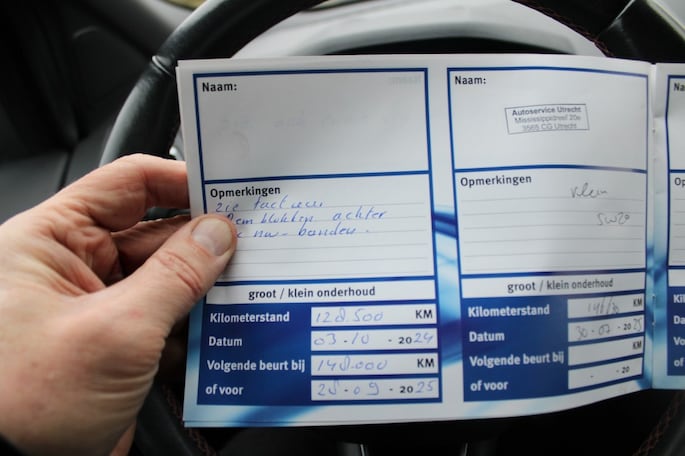 Naam:
Opmerkingen
zie factuur
blokken achter
nw-banden.
groot / klein onderhoud
Kilometerstand 128.500 KM
Datum 03-10-2024
Volgende beurt bij 148.000 KM
of voor 28-09-2025
Naam:
Autoservice Utrecht
Mississippidreef 20e
3565 CG Utrecht
Opmerkingen
Klein
5w20
groot / klein onderhoud
Kilometerstand KM
Datum 30-07-2025
Volgende beurt bij KM
of voor - -20
Na
Op
K
D
V
o